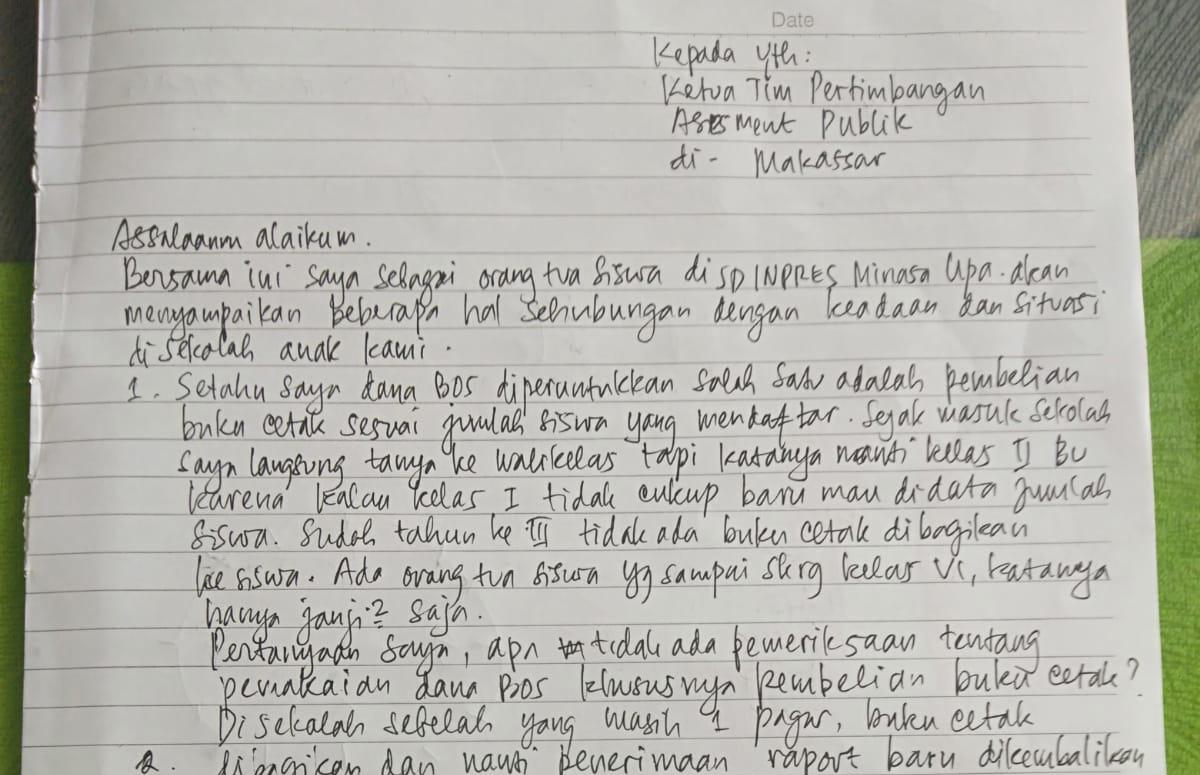 Date
Kepada Yth:
Ketua Tim Pertimbangan
Assesment Publik
di - Makassar
Assalaanm alaikum.
Bersama ini saya sebagai orang tua siswa di SD INPRES Minasa Upa. akan
menyampaikan beberapa hal sehubungan dengan keadaan dan situasi
di sekolah anak kami.
1. Setahu saya dana BOS diperuntukkan salah satu adalah pembelian
buku cetak sesuai jumlah siswa yang mendaftar. Sejak masuk sekolah
saya langsung tanya ke walikelas tapi katanya nanti kelas II Bu
karena kalau kelas I tidak cukup baru mau didata jumlah
siswa. Sudah tahun ke III tidak ada buku cetak dibagikan
ke siswa. Ada orang tua siswa yg sampai skrg kelas VI, katanya
hanya janji2 saja.
Pertanyaan saya, apa tidak ada pemeriksaan tentang
pemakaian dana BOS khususnya pembelian buku cetak?
Disekolah sebelah yang masih 1 pagar, buku cetak
2. dibagikan dan nanti penerimaan raport baru dikembalikan